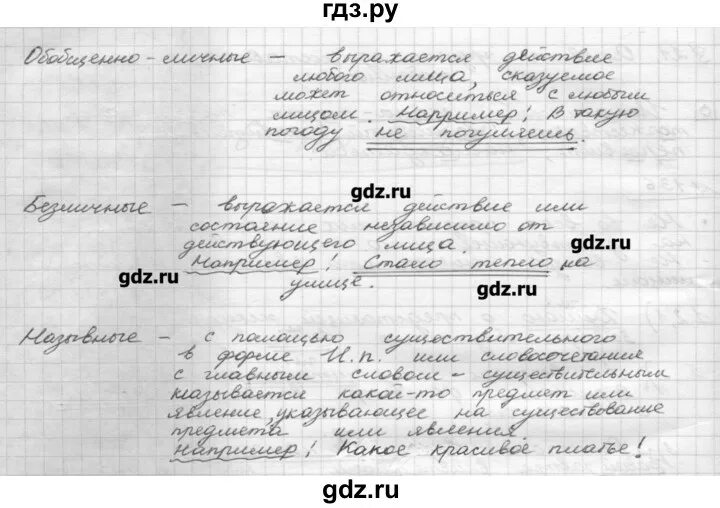 гдз.ру
Обобщенно-личные – выражается действие
любого лица, сказуемое
может относиться с любым
лицом. Например! В такую
погоду не погуляешь.
gdz.ru
Безличные – выражается действие или
состояние независимо от
действующего лица.
gdz.ru
Например! Стало тепло на
улице.
gdz.ru
gdz.ru
Назывные – с помощью существительного
в форме И.п. или словосочетания
с главным словом – существительным
называется какой-то предмет или
явление, указывающее на существование
предмета или явления.
Например! Какое красивое платье!
gdz.ru